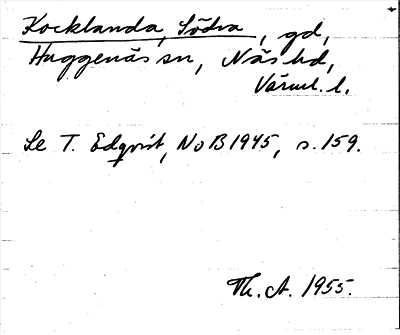 Kocklanda, Södra, gd,
Huggenäs sn, Näs hd,
Värml. l.
Se T. Edqvist, NoB 1945, s. 159.
Th. A. 1955.